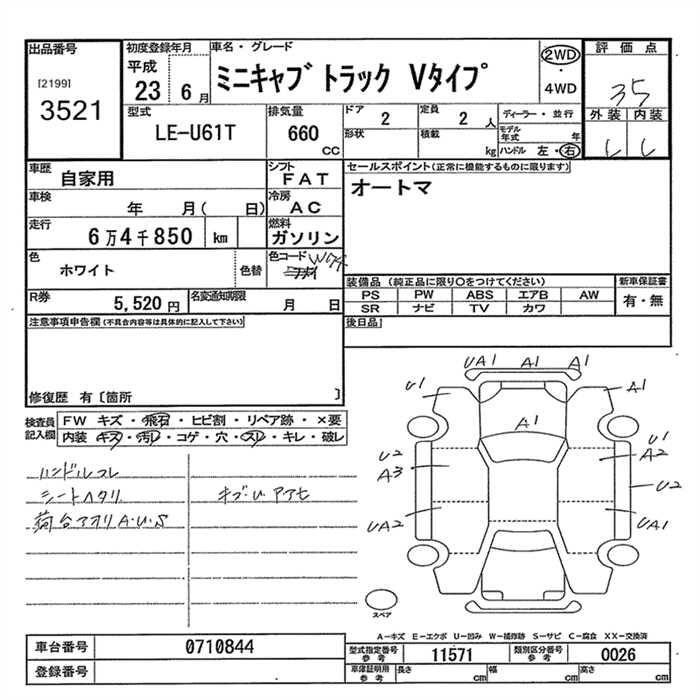 出品番号
[2199]
3521
初度登録年月
平成
23 6 月
車名・グレード
ミニキャブ トラック Vタイプ
2WD
・
4WD
評価点
3.5
外装 内装
型式
LE-U61T
排気量
660
CC
ドア
2
定員
2 人
形状
積載
kg
ディーラー・並行
モデル年式 年
ハンドル 左・右
車歴
自家用
シフト
FAT
車検
年 月( 日)
冷房
AC
走行
6万4千850 km
燃料
ガソリン
色
ホワイト
色替
色コード
セールスポイント(正常に機能するものに限ります)
オートマ
R券
5,520 円
名変通知期限
月 日
装備品 (純正品に限り○をつけてください)
PS PW ABS エアB AW
SR ナビ TV カワ
新車保証書
有・無
後日品
注意事項申告欄(不具合内容等は具体的に記入して下さい)
修復歴 有〔箇所 〕
検査員記入欄
FW キズ・飛石・ヒビ割・リペア跡・×要
内装 キズ・汚レ・コゲ・穴・スレ・キレ・破レ
ハンドルスレ
シートヘタリ
荷台アオリA・U・S
UA1 A1 A1
U1 A1
A1
U2 U1
A3 A2
U2
UA2 UA1
スペア
A-キズ E-エクボ U-凹み W-補修跡 S-サビ C-腐食 XX-交換済
車台番号
0710844
登録番号
型式指定番号参考
11571
類別区分番号参考
0026
車庫証明用参考
長さ cm
幅 cm
高さ cm